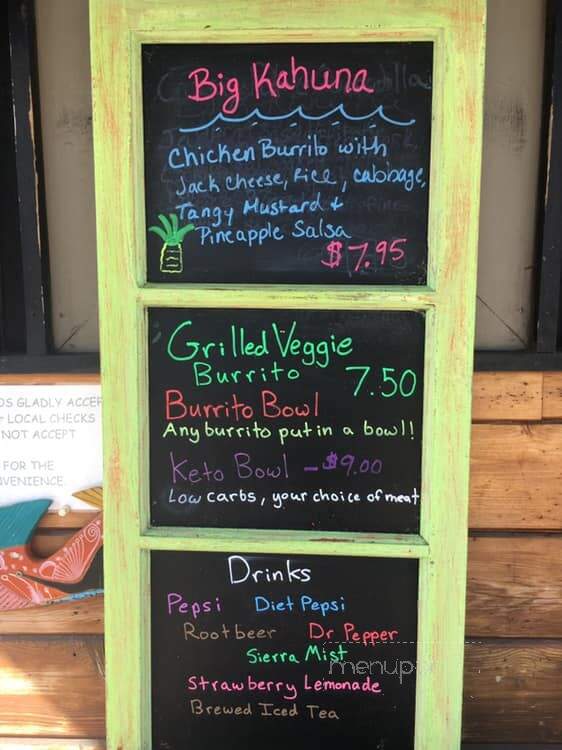 Big Kahuna
Chicken Burrito with
Jack cheese, Rice, cabbage,
Tangy Mustard +
Pineapple Salsa
$7.95
Grilled Veggie
Burrito 7.50
Burrito Bowl
Any burrito put in a bowl!
Keto Bowl - $9.00
Low carbs, your choice of meat
DS GLADLY ACCEP
LOCAL CHECKS
NOT ACCEPT
FOR THE
NVENIENCE
Drinks
Pepsi Diet Pepsi
Root beer Dr Pepper
Sierra Mist
Strawberry Lemonade
Brewed Iced Tea